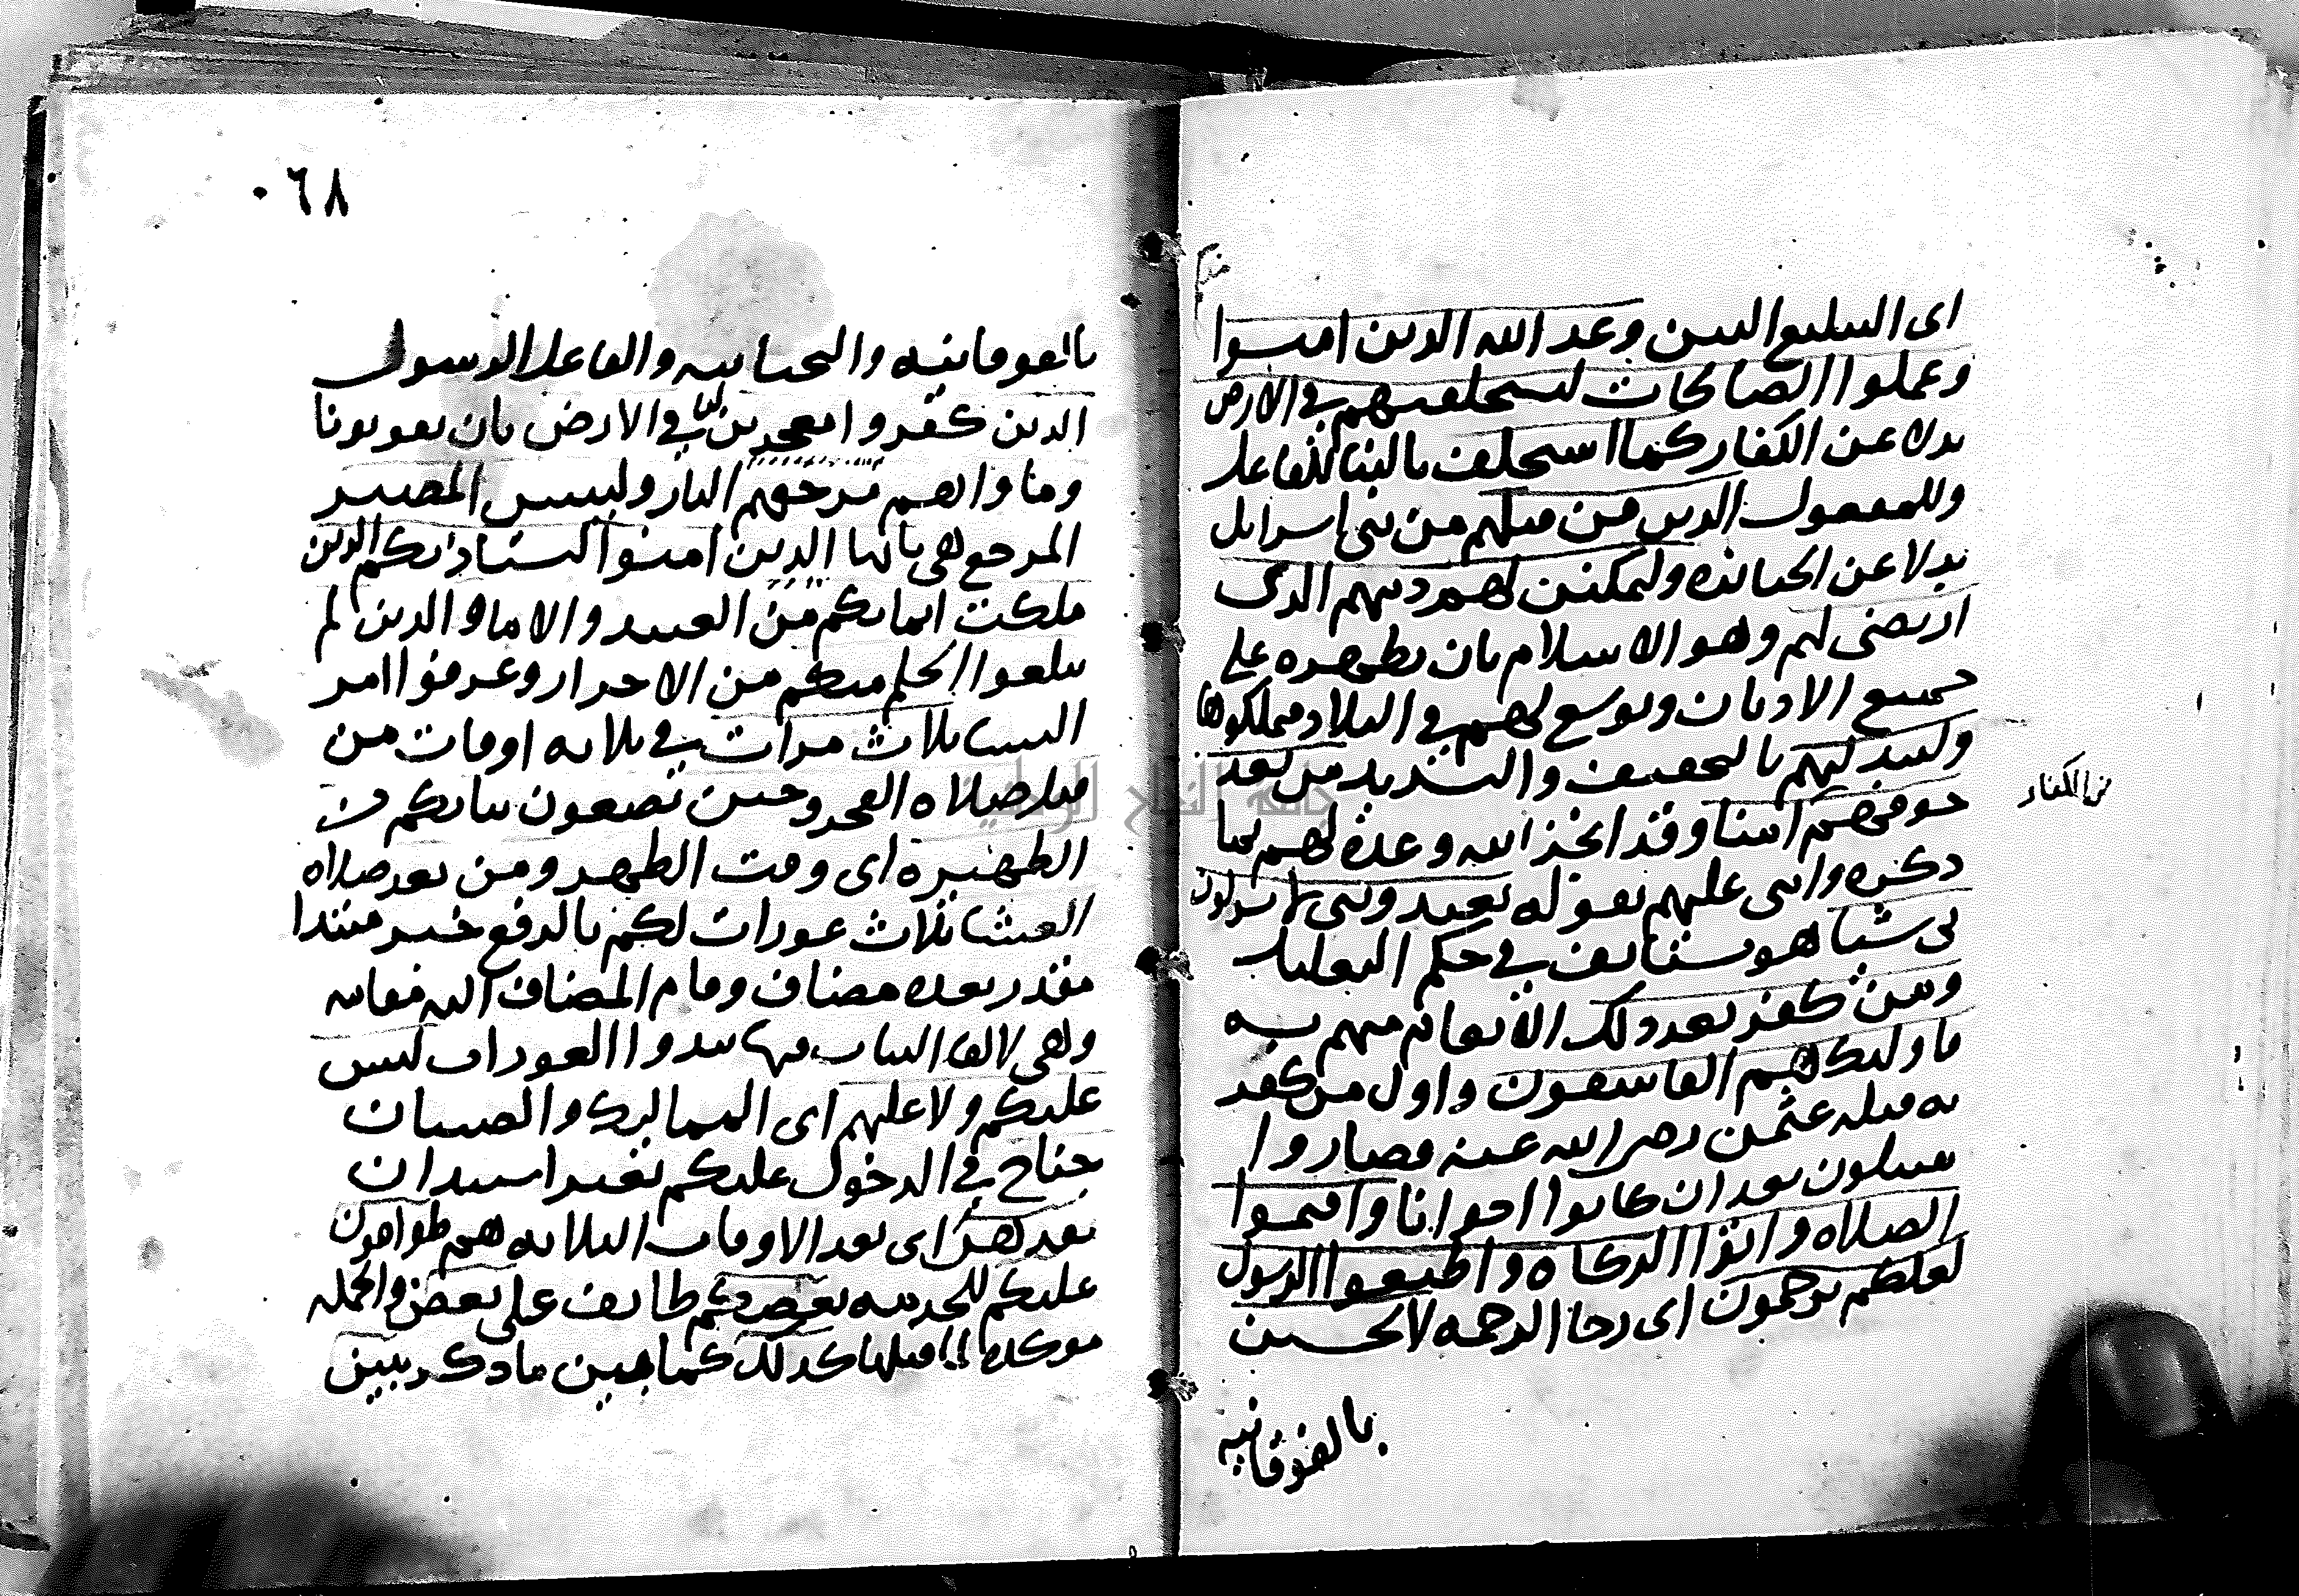 منكم
اى التبليغ البين وعد الله الذين امنوا
وعملوا الصالحات ليستخلفنهم في الارض
بدلا عن الكفار كما استخلف بالبنا للفاعل
وللمفعول الذين من قبلهم من بنى اسرايل
بدلا عن الجبابرة وليمكنن لهم دينهم الذى
ارتضى لهم وهو الاسلام بان يظهره على
جميع الاديان ويوسع لهم في البلاد فيملكوها
وليبدلنهم بالتخفيف والتشديد من بعد
خوفهم امنا وقد انجز الله وعده لهم بما
من الكفار
ذكره واثنى عليهم بقوله يعبدوننى لا يشركون
بى شيا هو مستانف في حكم التعليل
ومن كفر بعد ذلك الانعام منهم به
فاوليك هم الفاسقون واول من كفر
به قتله عثمن رضى الله عنه فصاروا
يقتتلون بعد ان كانوا اخوانا واقيموا
الصلاه واتوا الزكاه واطيعوا الرسول
لعلكم ترحمون اى رجا الرحمه لا تحسبن
بالفوقانيه
٠٦٨
بالفوقانيه والتحتانيه والفاعل الرسول
الذين كفروا معجزين لنا في الارض بان يفوتونا
وماواهم مرجعهم النار ولبيس المصير
المرجع هى يايها الذين امنوا ليستاذنكم الذين
ملكت ايمانكم من العبيد والاماء والذين لم
يبلغوا الحلم منكم من الاحرار وعرفوا امر
النسا ثلاث مرات في ثلاثه اوقات من
قبل صلاه الفجر وحين تضعون ثيابكم من
الظهيرة اى وقت الظهر ومن بعد صلاه
العشا ثلاث عورات لكم بالرفع خبر مبتدا
مقدر بعده مضاف وقام المضاف اليه مقامه
وهى لالقا الثياب فيها تبدوا العورات ليس
عليكم ولا عليهم اى المماليك والصبيان
جناح في الدخول عليكم بغير استيذان
بعدهن اى بعد الاوقات الثلاثه هم طوافون
عليكم للخدمه بعضكم طايف على بعض والجمله
موكده لما قبلها كذلك كما بين ما ذكر يبين